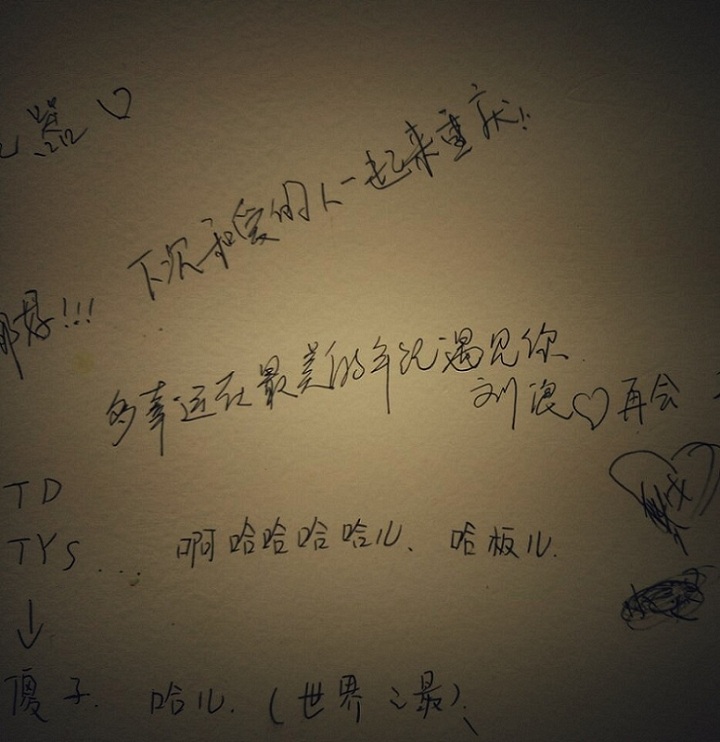 器♡
下次和爱的人一起来重庆!
那好!!!
多幸运在最美的年纪遇见你
刘浪♡再会
TD
TYS .... 啊哈哈哈哈儿、哈板儿.
↓
傻子. 哈儿. (世界之最)、